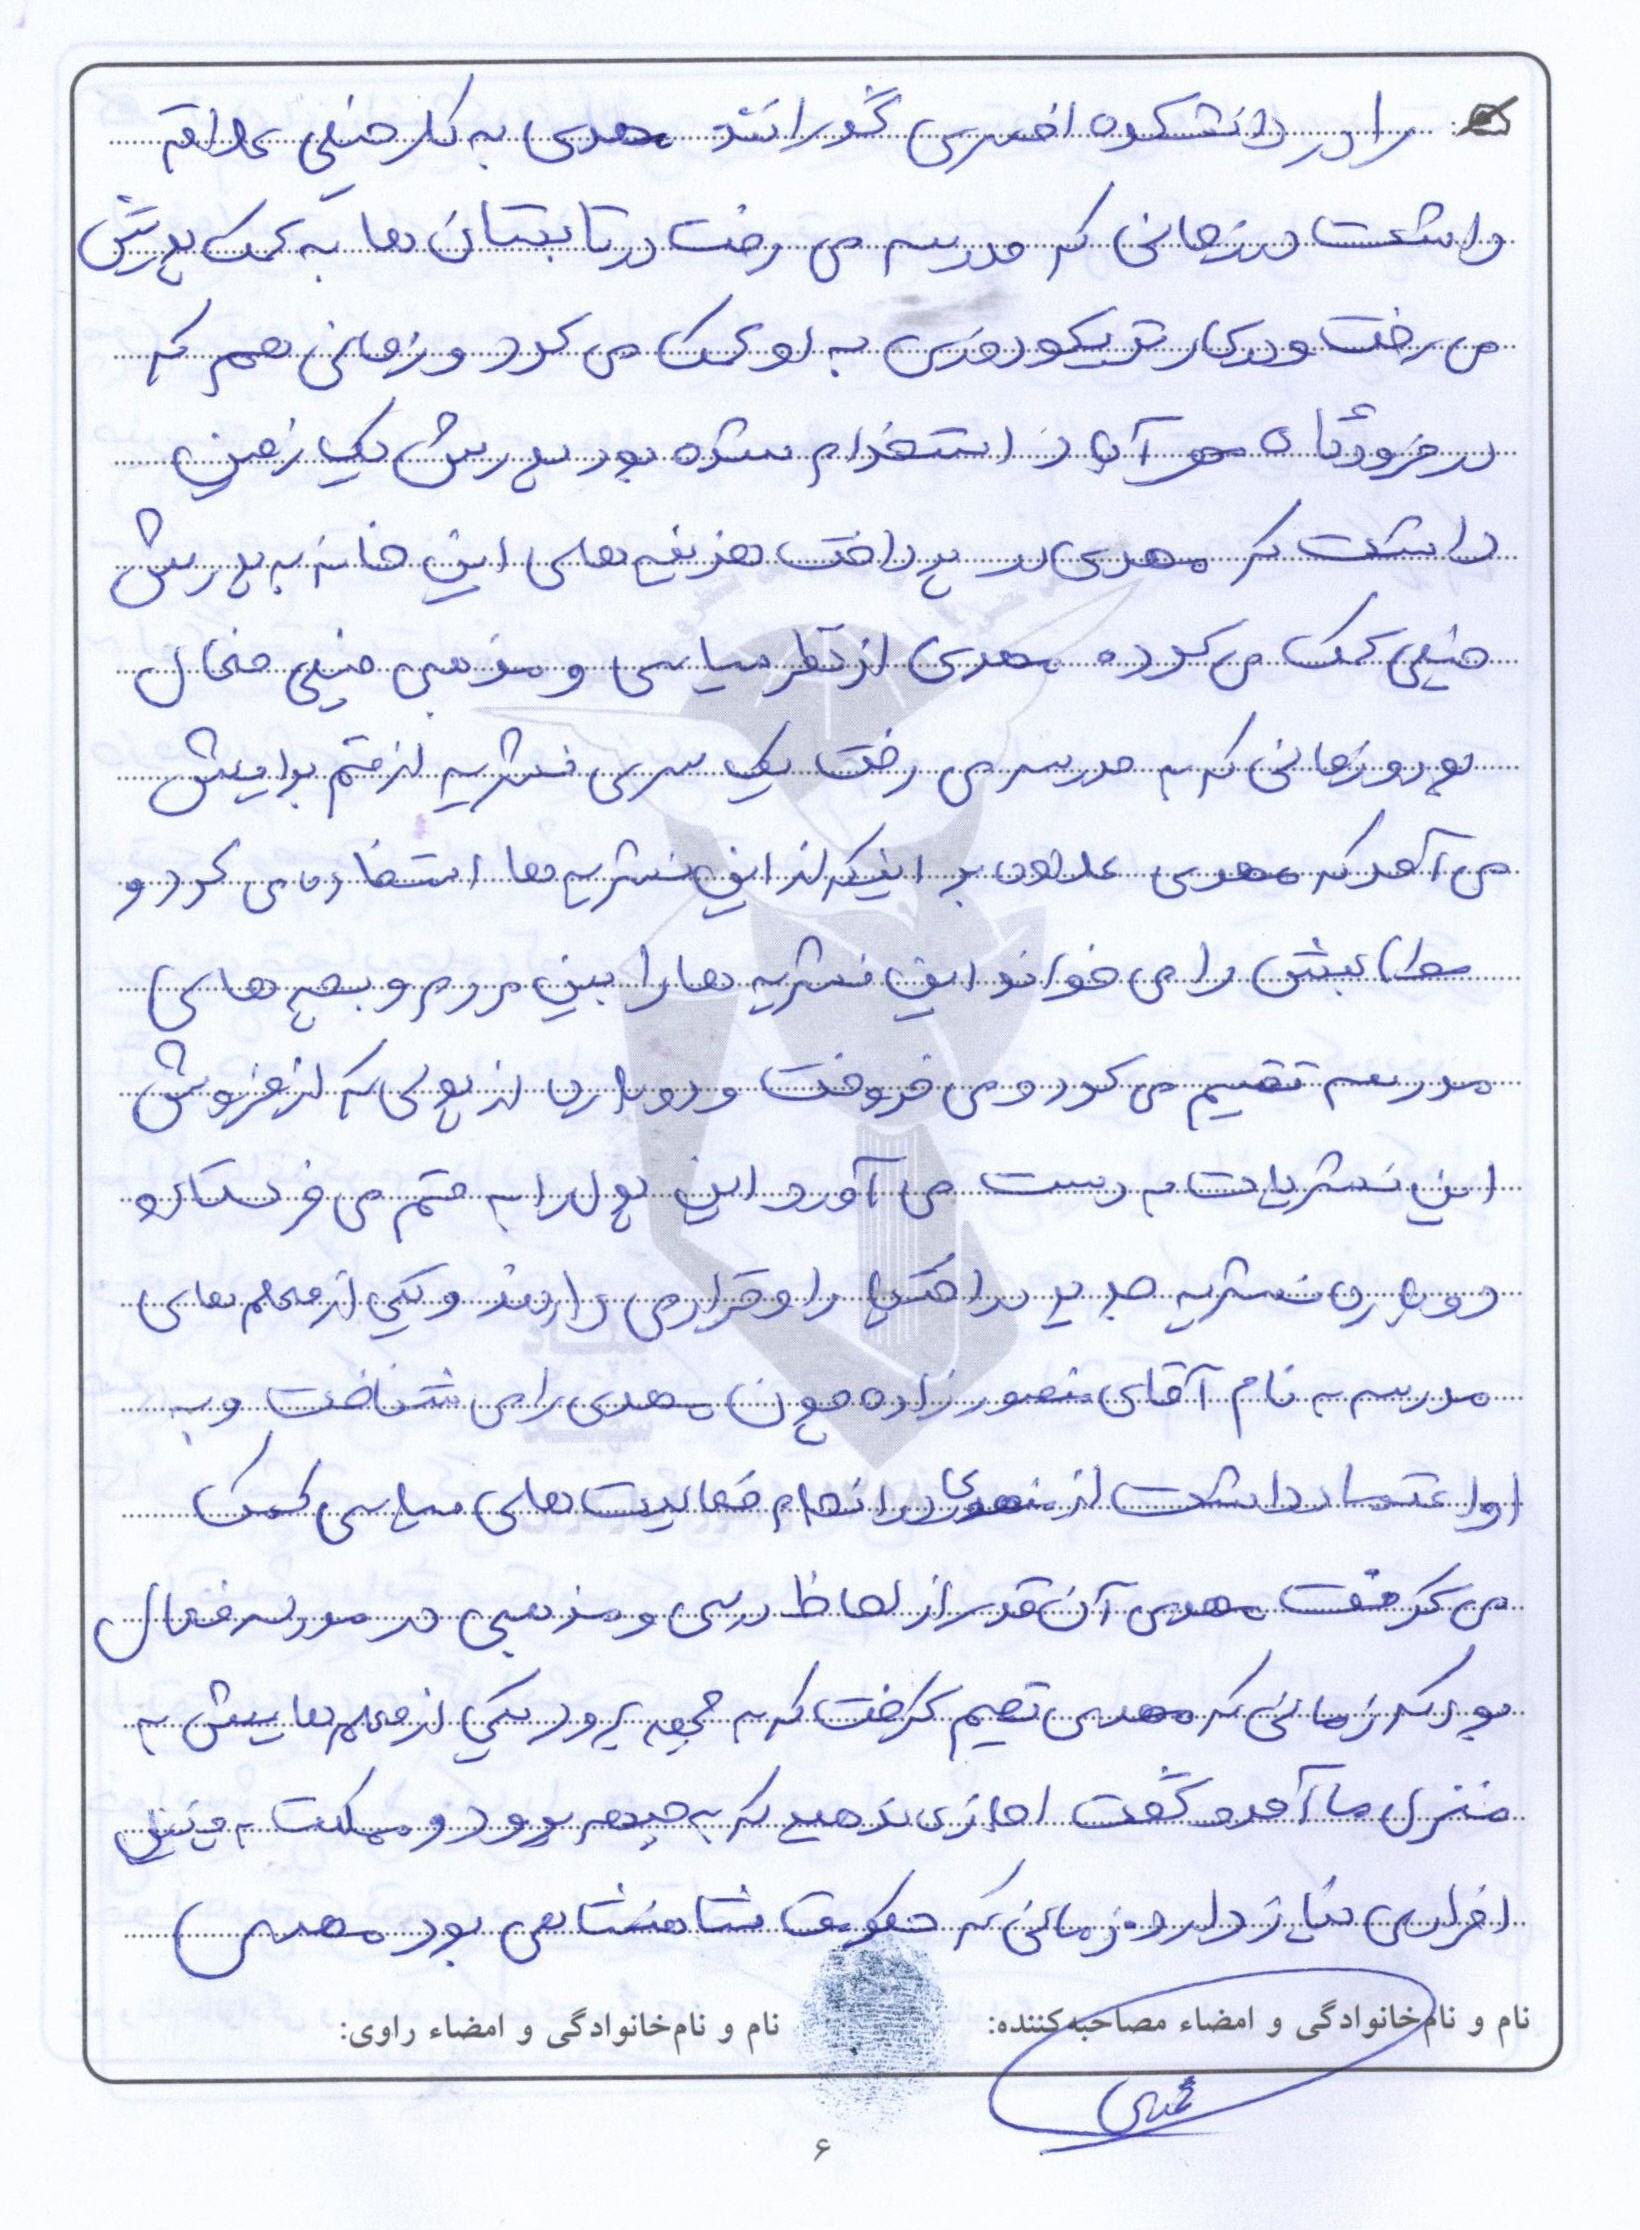 را در دانشکده افسری گذراند مهدی به کار خیلی علاقه
داشت در زمانی که مدرسه می رفت در تابستان ها به کمک پدرش
می رفت و در کار تریکو دوزی به او کمک می کرد و زمانی هم که
در فرودگاه مهرآباد استخدام شده بود پدرش یک زمین
داشت که مهدی در پرداخت هزینه های این خانه به پدرش
خیلی کمک می کرده مهدی از نظر سیاسی و مذهبی خیلی فعال
بود و زمانی که به مدرسه می رفت یک سری نشریه از قم برایش
می آمد که مهدی علاوه بر اینکه از این نشریه ها استفاده می کرد و
مطالبش را می خواند این نشریه ها را بین مردم و بچه های
مدرسه تقسیم می کرد و می فروخت و دوباره از پولی که از فروش
این نشریات به دست می آورد این پول را به قم می فرستاد و
دوباره نشریه جدید در اختیار او قرار می دادند و یکی از معلم های
مدرسه به نام آقای منصور زاده چون مهدی را می شناخت و به
او اعتماد داشت از مهدی در انجام فعالیت های سیاسی کمک
می گرفت مهدی آن قدر از لحاظ درسی و مذهبی در مدرسه فعال
بود که زمانی که مهدی تصمیم گرفت که به جبهه برود یکی از معلم هایش به
منزل ما آمد و گفت اجازه ندهید که به جبهه برود و مملکت به چنین
افرادی نیاز دارد و زمانی که حکومت شاهنشاهی بود مهدی
نام و نام‌خانوادگی و امضاء مصاحبه‌کننده:
نام و نام‌خانوادگی و امضاء راوی:
۶